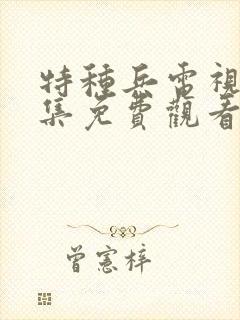 特種兵電視
集免費觀看
曾憲梓